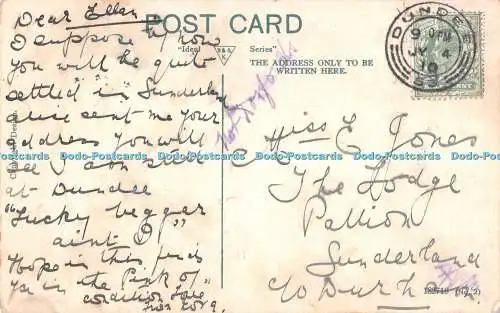 Dear Ellen
I suppose by now
you will be quite
settled in Sunderland
alice sent me your
address you will
see I am still
at Dundee
"Lucky beggar
aint I"
Hope in this finds
you in the Pink of
condition Love
from
POST CARD
"Ideal Series"
THE ADDRESS ONLY TO BE
WRITTEN HERE.
DUNDEE
9 PM
JY 4
10
Miss E Jones
The Lodge
Pallion
Sunderland
c/o Durh
Dodo-Postcards Dodo-Postcards Dodo-Postcards Dodo-Postcards Dodo-Postcards